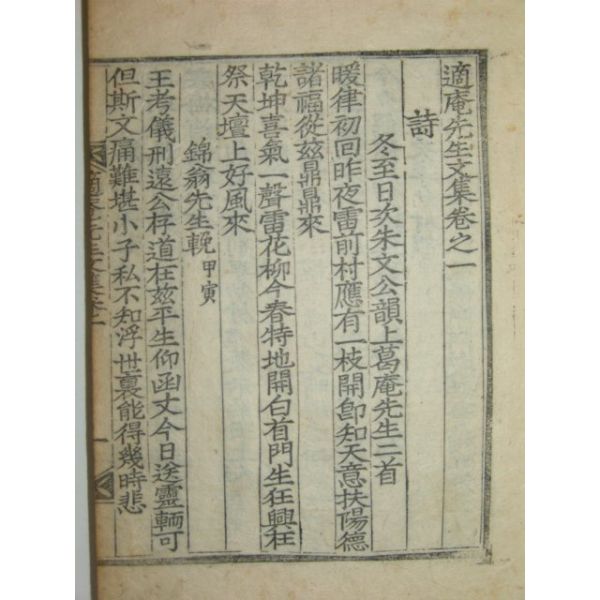 適庵先生文集卷之一
詩
冬至日次朱文公韻上葛庵先生二首
暖律初回昨夜雷前村應有一枝開卽知天意扶陽德
諸福從玆鼎鼎來
乾坤喜氣一聲雷花柳今春特地開白首門生狂興在
祭天壇上好風來
錦翁先生輓 甲寅
王考儀刑遠公存道在玆平生仰函丈今日送靈輀可
但斯文痛難堪小子私不知浮世裏能得幾時悲
適庵先生文集卷一